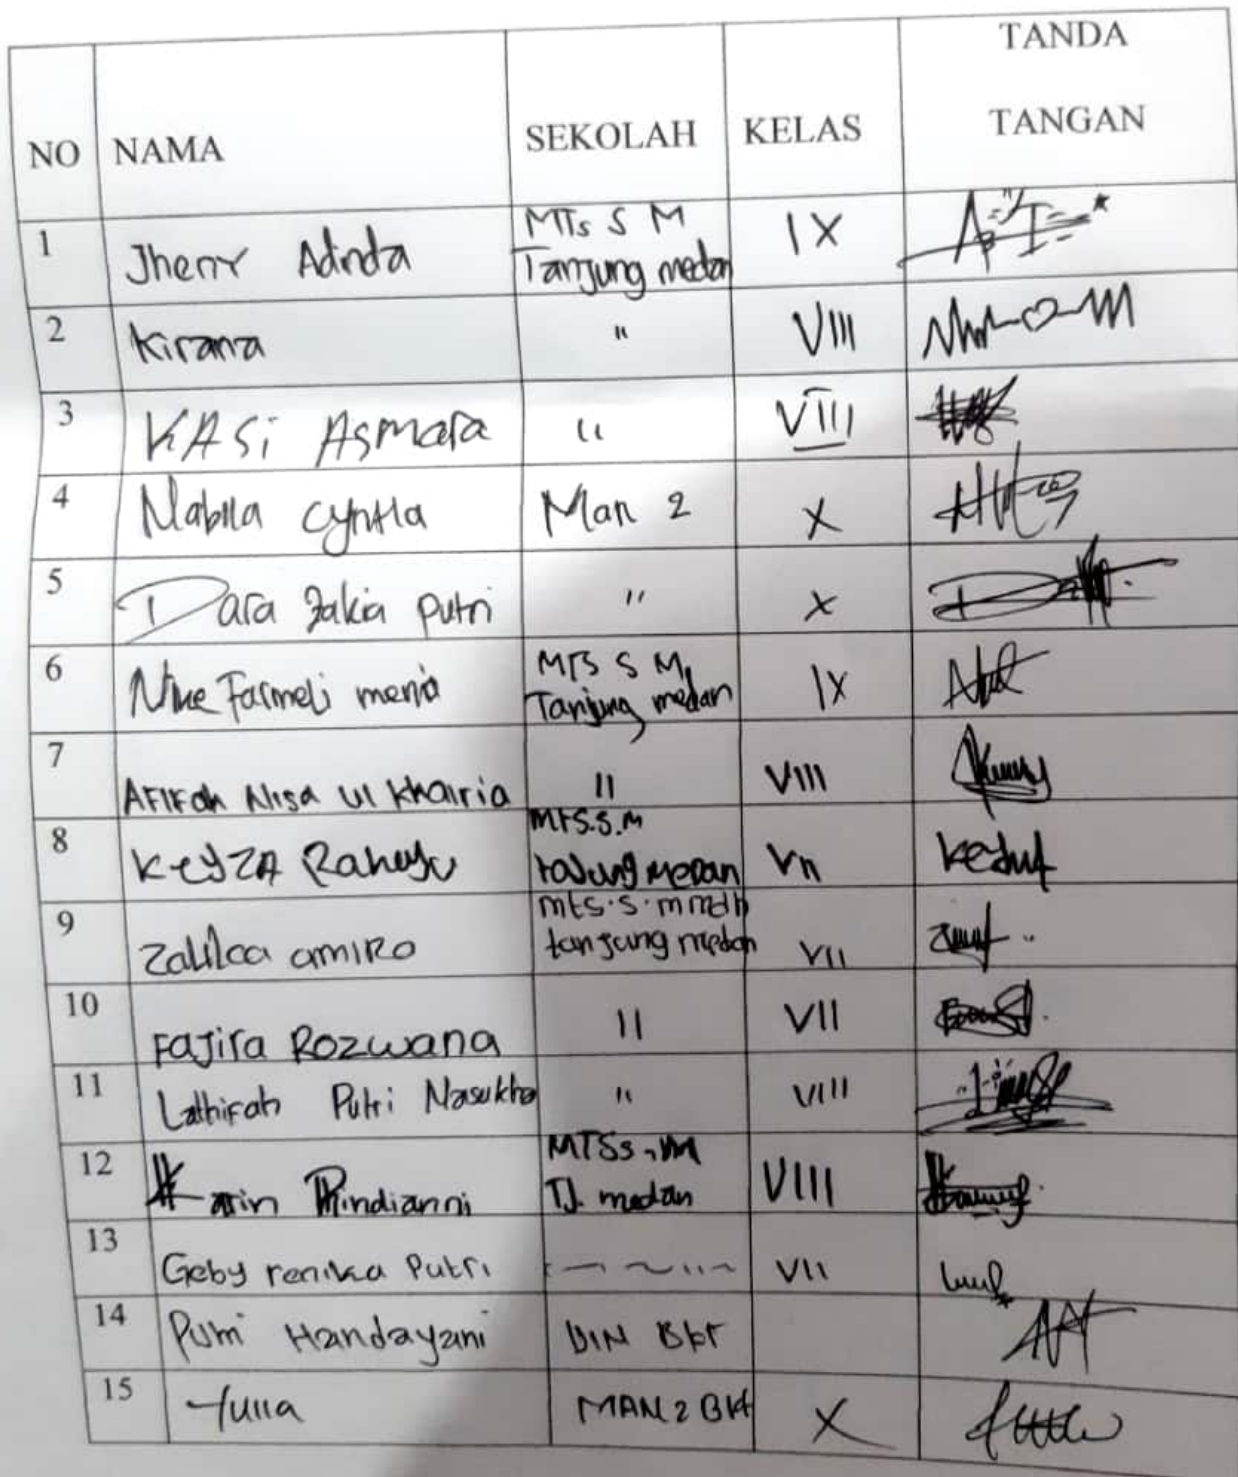 TANDA
NO NAMA SEKOLAH KELAS TANGAN
1 Jheny Adinda MTs S M Tanjung medan IX
2 Kirana " VIII
3 KASi Asmara " VIII
4 Nabila cyntia Man 2 X
5 Dara zakia putri " X
6 Farmeli MTS S M Tanjung medan IX
7 AFIFah Nisa ul khairia " VIII
8 KeyZA Rahayu MtS.S.M medan VII
9 mts.s.m tanjung medan VII
10 Fajira Rozwana " VII
11 Lathifah Putri " VIII
12 Karin Rindianni MTSs.M TJ. medan VIII
13 Geby renika Putri VII
14 Putri Handayani UIN Bkt
15 Yulia MAN 2 Bkt X